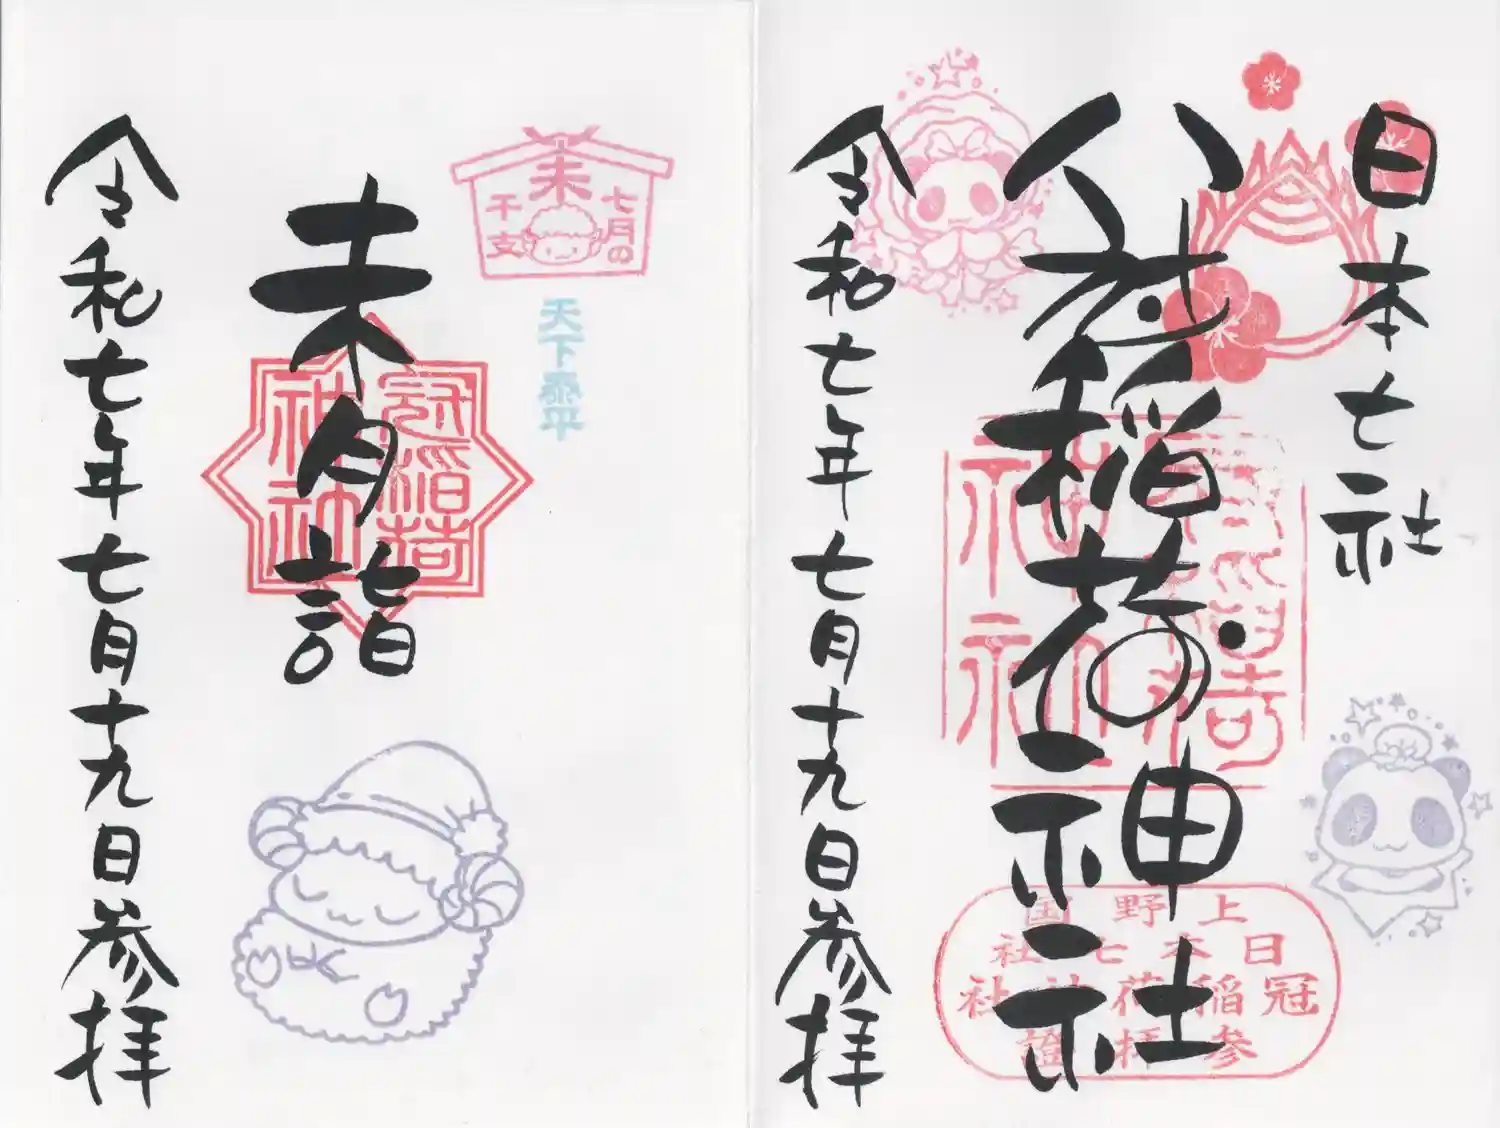 日本七社
冠稲荷神社
冠稲荷
神社
上野国
日本七社
冠稲荷神社
参拝證
令和七年七月十九日参拝
七月の
未
干支
天下泰平
未月詣
冠稲荷
神社
令和七年七月十九日参拝